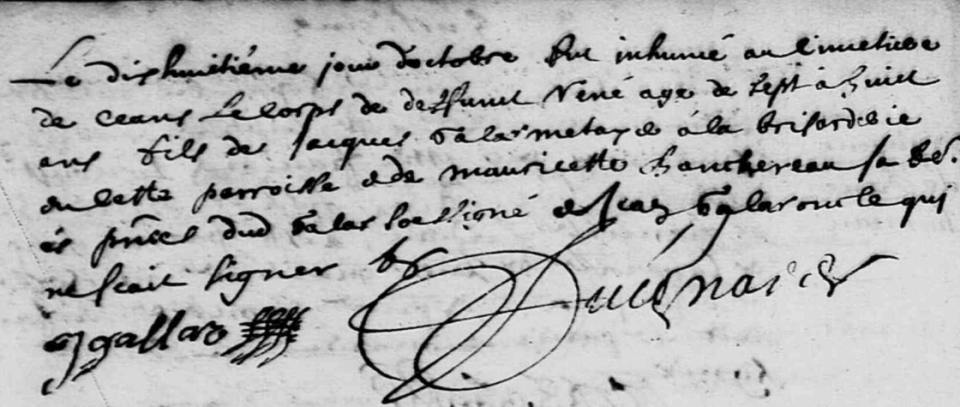 Le dishuitiéme jour d'octobre fut inhumé au cimetiere
de ceans le corps de deffunct René age de sept à huict
ans fils de Jacques Galar metayer à la brisarderie
en cette parroisse & de Mauricette hanchereau sa fe.
és pnces dud Galar soussigné & Jean Galar oncle qui
ne scait signer
J gallar